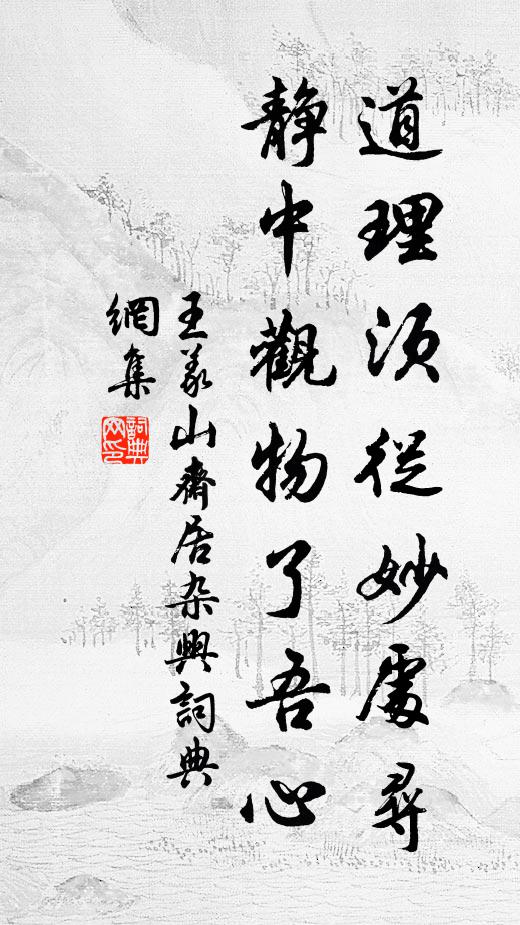 道理須從妙處尋
靜中觀物了吾心
王義山齋居杂興詞典
網集
詞典
网印